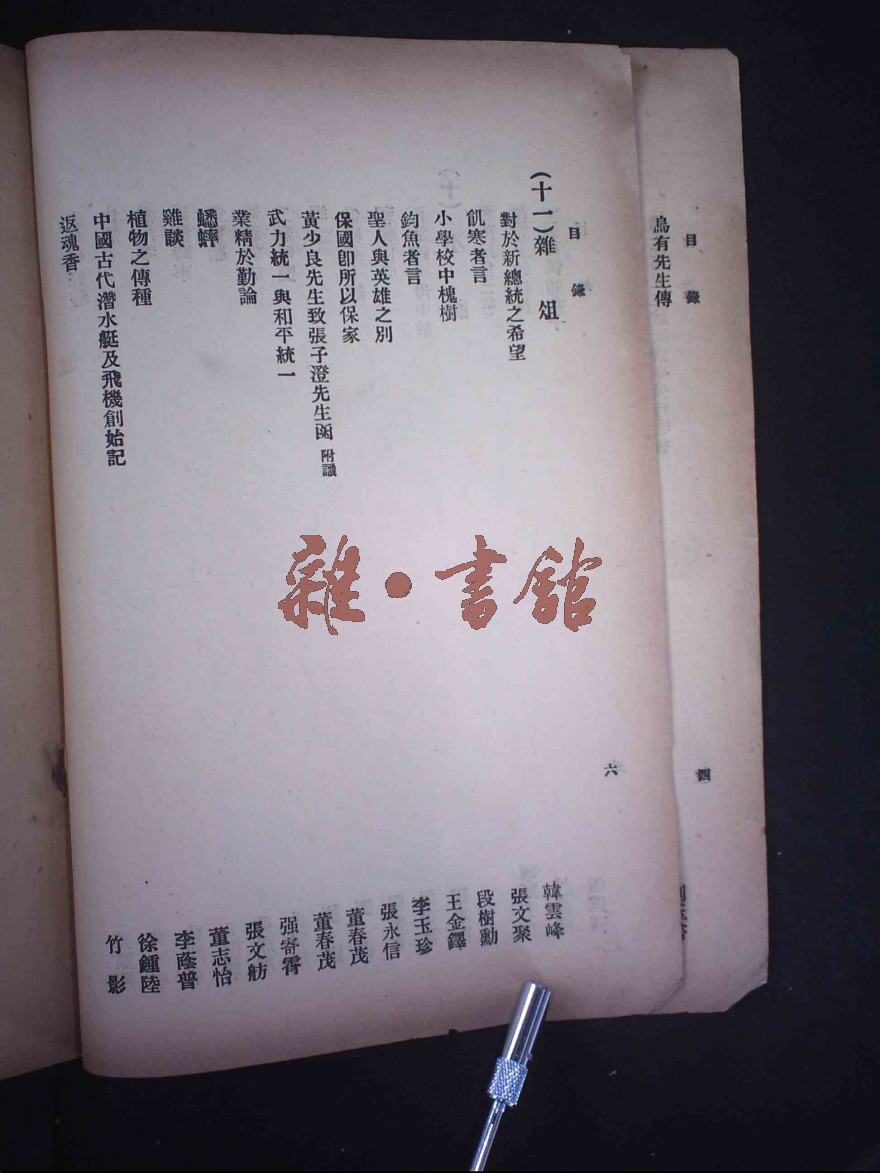 目錄
烏有先生傳
四
目錄
六
(十一)雜俎
對於新總統之希望 韓雲峰
飢寒者言 張文聚
小學校中槐樹 段樹勳
鈞魚者言 王金鐸
聖人與英雄之別 李玉珍
保國卽所以保家 張永信
黃少良先生致張子澄先生函 附識 董春茂
武力統一與和平統一 董春茂
業精於勤論 强寄霄
蟋蟀 張文舫
雞談 董志怡
植物之傳種 李蔭普
中國古代潛水艇及飛機創始記 徐鍾陸
返魂香 竹影
雜·書館